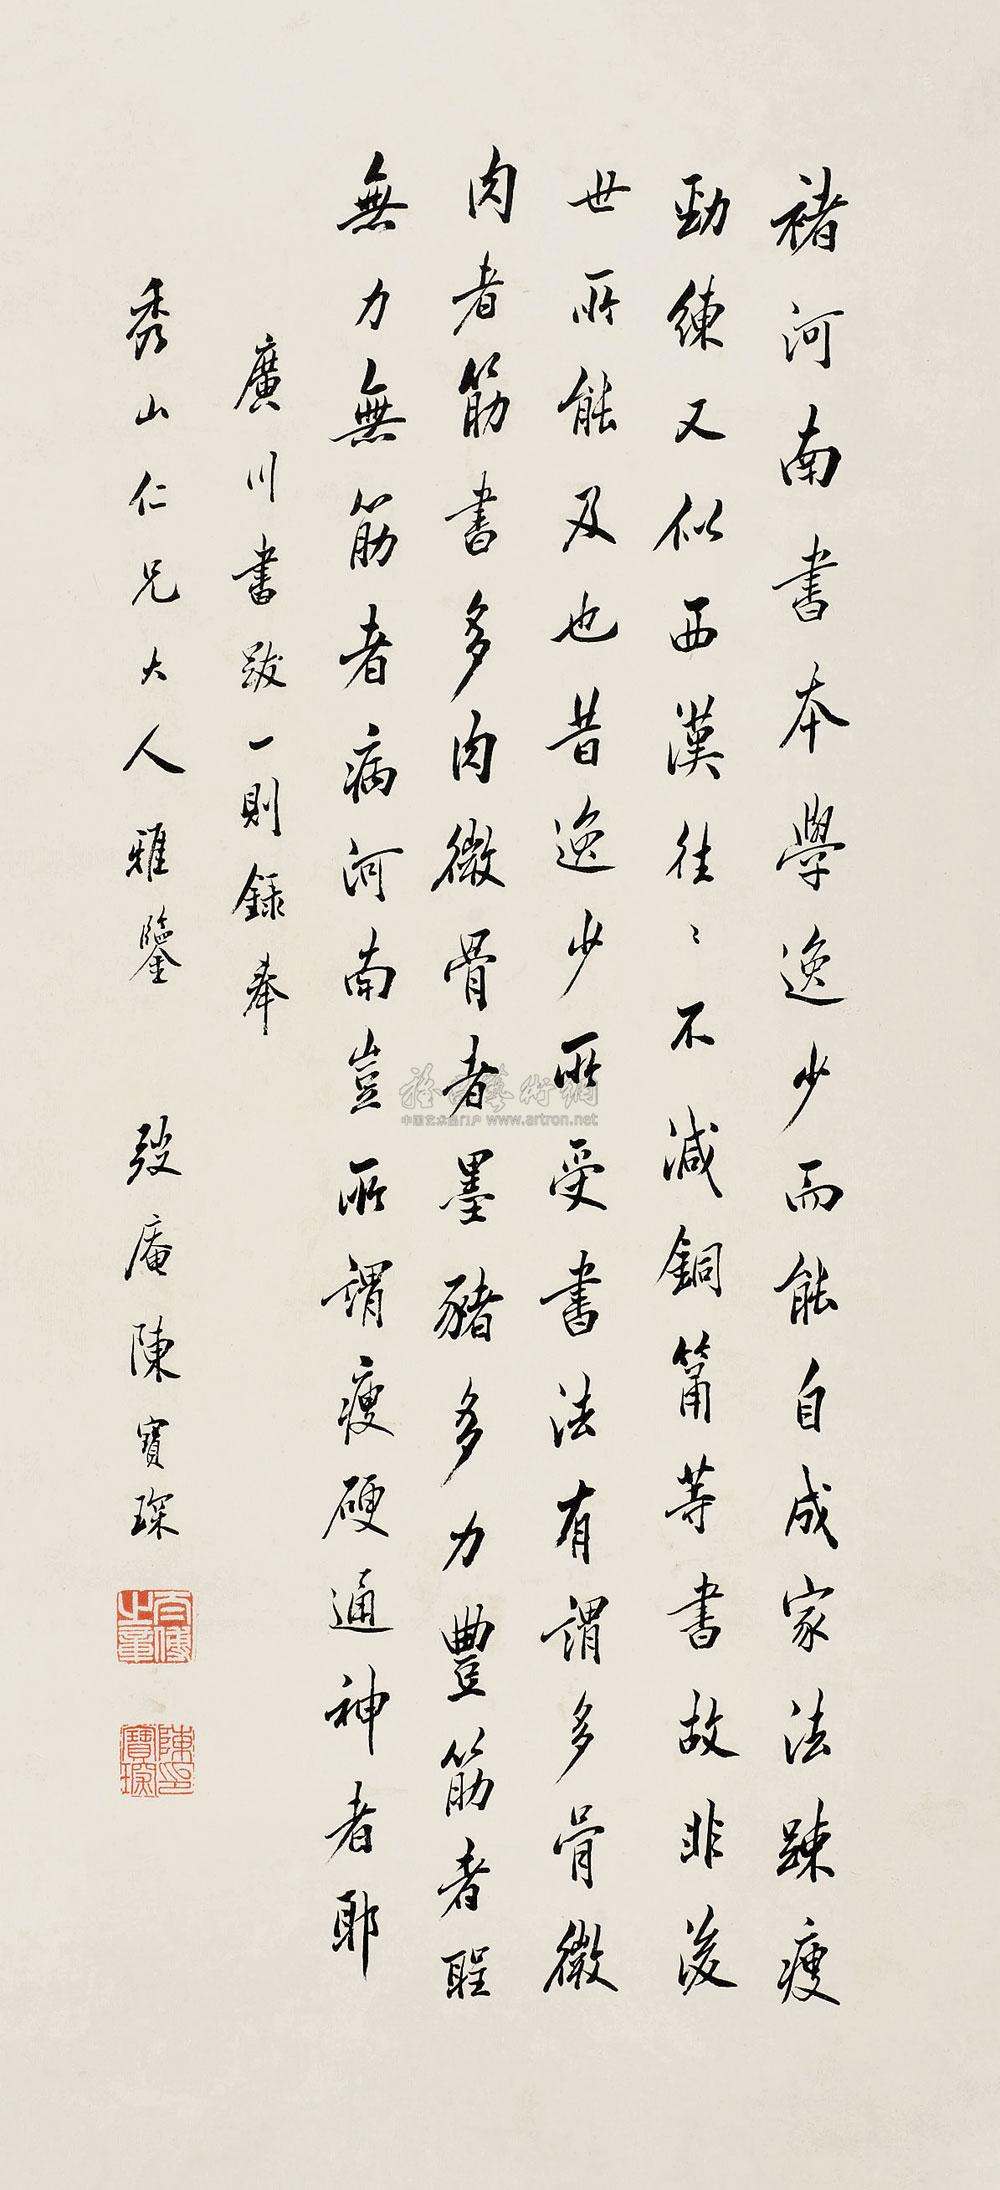 褚河南書本學逸少而能自成家法踈瘦
勁練又似西漢往〻不減銅筩等書故非後
世所能及也昔逸少所受書法有謂多骨微
肉者筋書多肉微骨者墨豬多力豐筋者聖
無力無筋者病河南豈所謂瘦硬通神者耶
廣川書跋一則錄奉
秀山仁兄大人雅鑒
弢庵陳寶琛
太傅之章
陳寶琛印
中国艺术品门户 www.artron.net